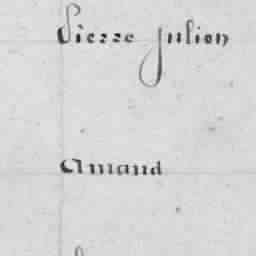 Pierre Julien
Amand